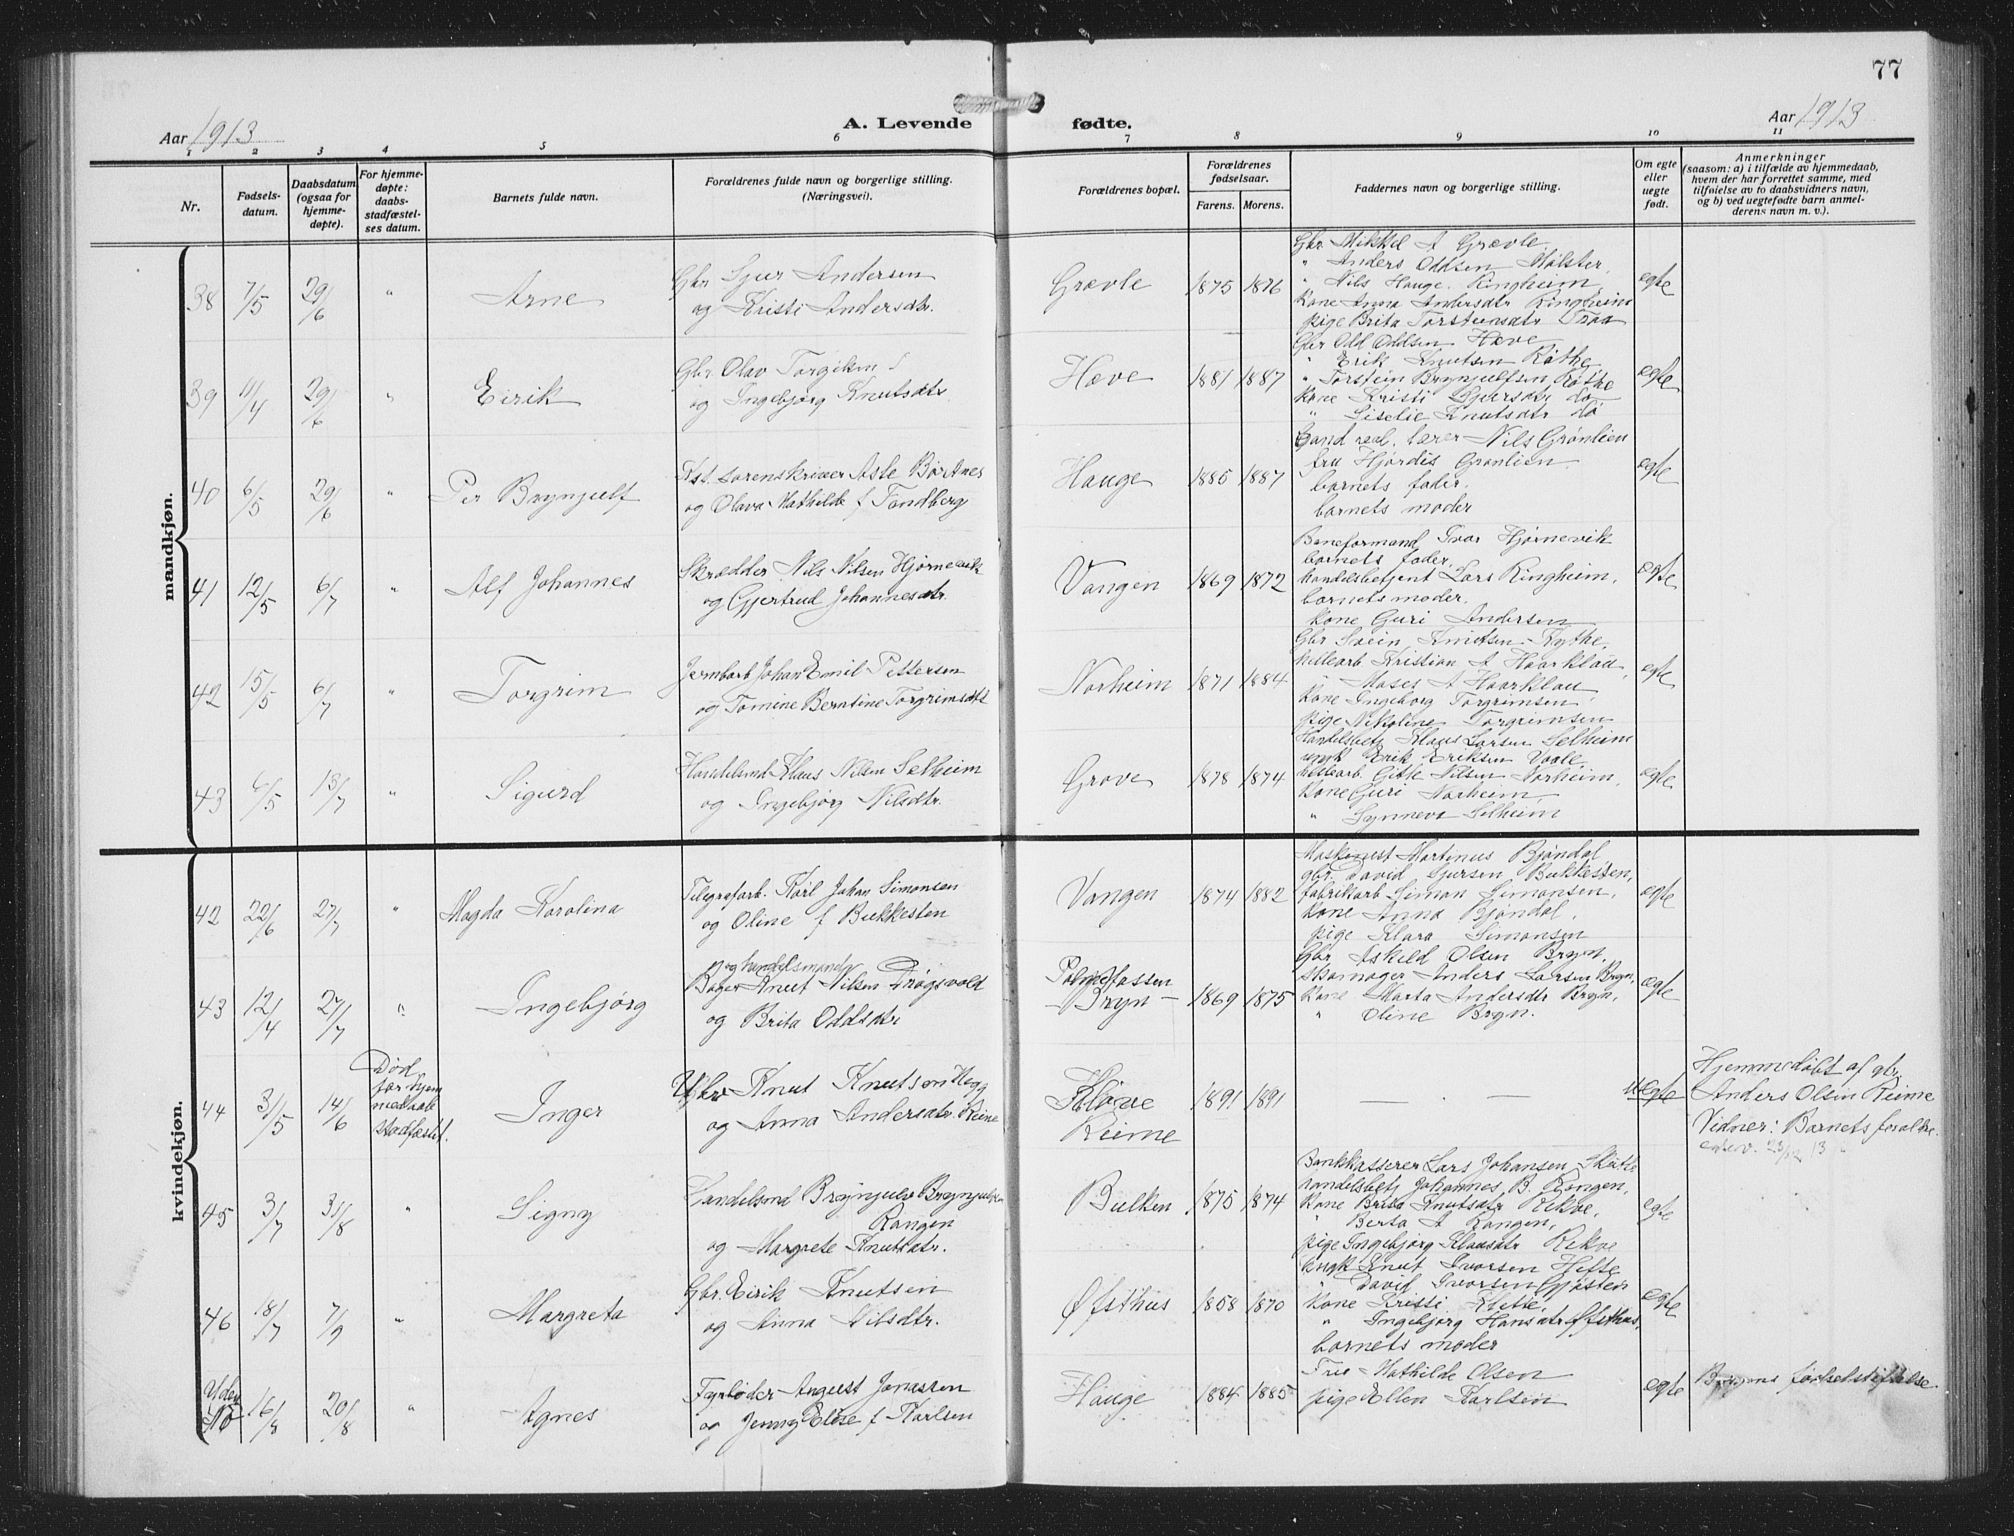 77
Aar 1913
A. Levende fødte.
Aar 1913
1 2 3 4 5 6 7 8 9 10 11
Nr.
Fødsels-
datum.
Daabsdatum
(ogsaa for
hjemme-
døpte).
For hjemme-
døpte:
daabs-
stadfæstel-
ses datum.
Barnets fulde navn.
Forældrenes fulde navn og borgerlige stilling.
(Næringsvei).
Forældrenes bopæl.
Forældrenes
fødselsaar.
Farens. Morens.
Faddernes navn og borgerlige stilling.
Om egte
eller
uegte
født.
Anmerkninger
(saasom: a) i tilfælde av hjemmedaab,
hvem der har forrettet samme, med
tilføielse av to daabsvidners navn,
og b) ved uegtefødte barn anmel-
derens navn m. v.).
mandkjøn.
38 7/5 29/6 " Arne
Gbr Sjur Andersen
og Kristi Andersdtr.
Grævle 1875 1876
Gbr Mikkel A Grævle
" Anders Oddsen Mølster,
" Nils Hauge. Ringheim,
Kone Anna Andersdtr Ringheim
pige Brita Torsteinsdtr Traa
egte
39 11/4 29/6 " Eirik
Gbr. Olav Torgilsen
og Ingebjørg Knutsdtr
Hæve 1881 1887
Gbr Odd Oddsen Hæve
" Erik Knutsen Røthe
" Torstein Brynjulfsen Røthe
Kone Kristi Sjursdtr do
" Siselie Knutsdtr do
egte
40 6/5 29/6 " Per Brynjulf
Kst. sorenskriver Asle Bjør Anes
og Olava Mathilde f Tandberg
Hauge 1885 1887
Cand real. lærer Nils Grønlien
fru Hjørdis Grønlien
barnets fader.
barnets moder
egte
41 12/5 6/7 " Alf Johannes
Skrædder Nils Nilsen Hjørnevik
og Gjertrud Johannesdtr.
Vangen 1869 1872
Baneformand Ivar Hjørnevik
barnets fader,
handelsbetjent Lars Ringheim,
barnets moder.
kone Guri Andersen
egte
42 15/5 6/7 " Torgrim
Jernbarb Johan Emil Pettersen
og Tomine Berntine Torgrimsdtr
Norheim 1871 1884
Gbr Svein Knutsen Kythe,
hellearb Kristian A Haarklau,
" Moses A Haarklau
Kone Ingeborg Torgrimsen
pige Nikoline Torgrimsen
egte
43 6/5 13/7 " Sigurd
Handelsmd Klaus Nilsen Selheim
og Ingebjørg Nilsdtr.
Grove 1878 1874
Handelsbetj Klaus Larsen Selheim
ungk Erik Eriksen Vaale
hellearb. Gitle Nilsen Norheim,
Kone Guri Norheim
" Synneva Selheim
egte
kvindekjøn.
42 22/6 27/7 " Magda Karolina
Telegrafarb. Karl Johan Simonsen
og Oline f Bukkesten
Vangen 1874 1882
Maskinist Martinus Bjøndal
gbr. David Sjursen Bukkesten,
fabrikarb Simon Simonsen,
Kone Anna Bjøndal,
pige Klara Simonsen
egte
43 12/4 27/7 " Ingebjørg
og handelsmand
Bager Knut Nilsen Drøgsvold
og Brita Oddsdtr
Palmafossen
Bryn 1869 1875
Gbr Askild Olsen Bryn,
skomager Anders Larsen Bryn,
Kone Marta Andersdtr Bryn,
" Oline Bryn.
egte
44 31/5 14/6
Død
før hjem
medaab
stadfæstet.
Inger
Knut Knutsen Hegg
og Anna Andersdtr Reime
Kløve
Reime 1891 1891
— . —
uegte
Hjemmedøbt af gbr.
Anders Olsen Reime
Vidner: Barnets foraldre.
45 3/7 31/8 " Signy
Handelsmd Brynjulv Brynjulvsen
Rongen
og Margrete Knutsdtr.
Bulken 1875 1874
Bankkasserer Lars Johansen Skutle
handelsbetj Johannes B. Rongen,
Kone Brita Knutsdtr Rekve,
" Berta A Rongen,
pige Ingebjørg Klausdtr Rekve
egte
46 18/7 7/9 " Margreta
Gbr. Eirik Knutsen
og Anna Nilsdtr.
Øfsthus 1858 1870
Ungk Knut Ivarsen Hefte
" David Ivarsen Gjøsten
Kone Kristi
" Ingebjørg Hansdtr Øfsthus,
barnets moder
egte
16/3 20/8 " Agnes
Fyrbøder August Jonassen
og Jenny Elise f Karlsen
Hauge 1884 1885
Frue Mathilde Olsen
pige Ellen Karlsen
egte
Bergens fødselstiftelse